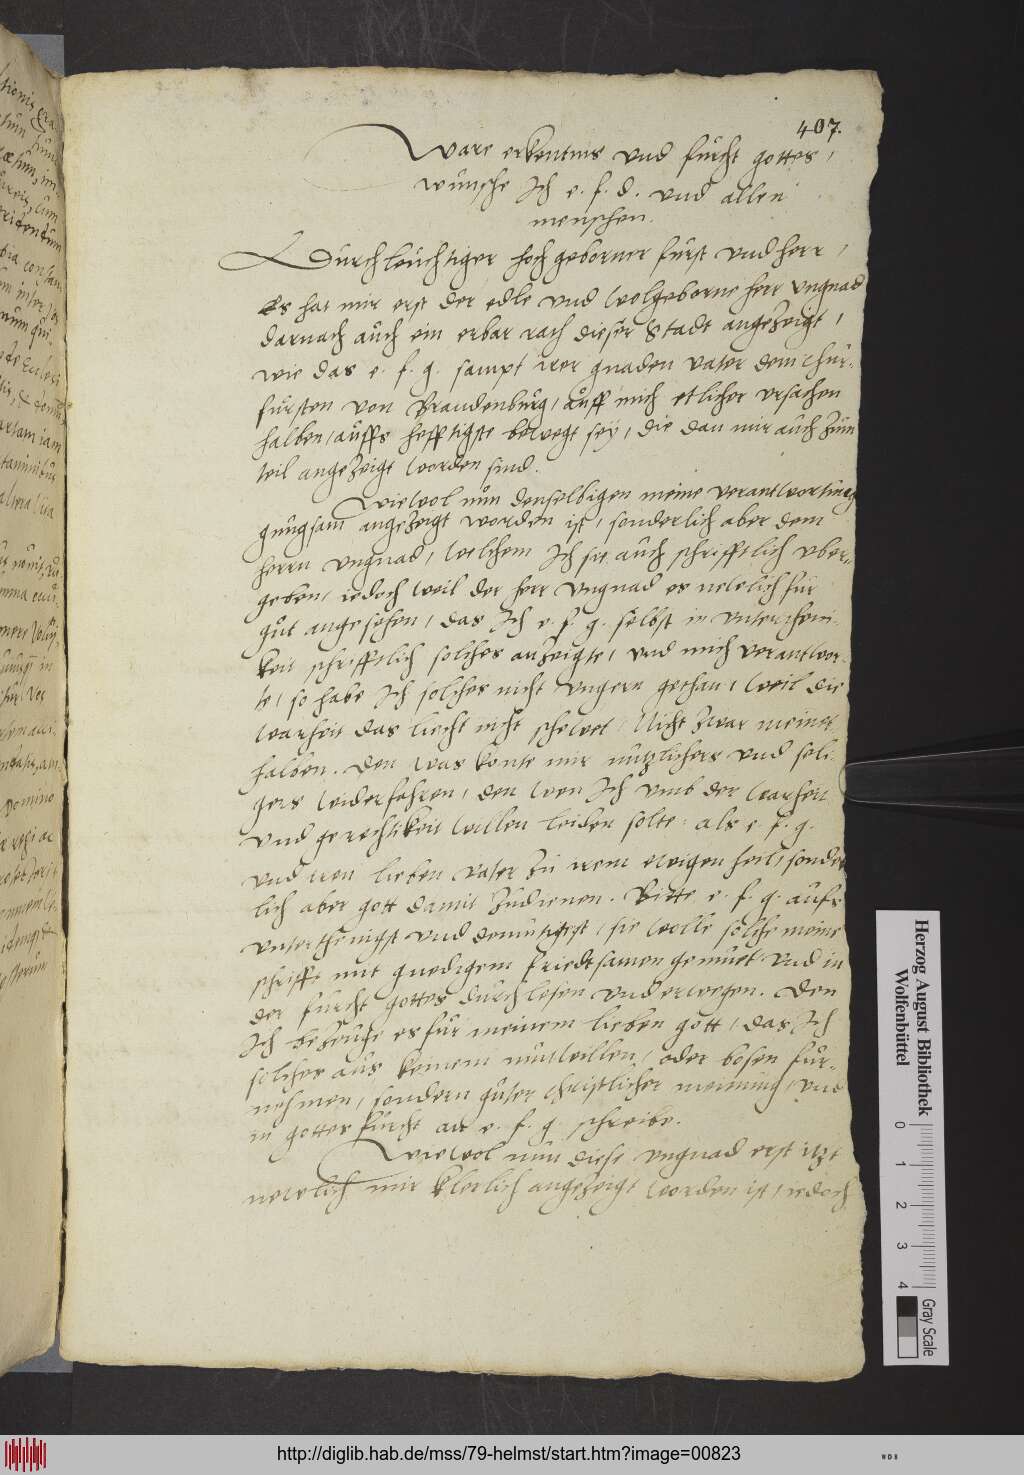 407.
Ware erkentnis und furcht gottes,
wunsche Ich e. f. d. und allen
menschen.
Durchleuchtiger hochgeborner furst und herr,
Es hat mir erst der edle und wolgeborne herr Ungnad
darnach auch ein erbar rath dieser Stadt angezeigt,
wie das e. f. g. sampt irer gnaden vater dem chur-
fursten von Brandenburg, auff mich etlicher ursachen
halben, auffs hefftigste bewegt sey, die dan mir auch zum
teil angezeigt worden sind.
Wiewol nun denselbigen meine verantwortung
gnugsam angezeigt worden ist, sonderlich aber dem
herrn Ungnad, welchem Ich sie auch schrifftlich uber-
geben, iedoch weil der herr Ungnad es newlich fur
gut angesehen, das Ich e. f. g. selbst in unterthenig-
keit schrifftlich solches anzeigte, und mich verantwor-
te, so habe Ich solches nicht ungern gethan, weil die
warheit das liecht nicht schewet, Nicht zwar meinet
halben. Den was konte mir nutzlichers und seli-
gers widerfahren, den wen Ich umb der warheit
und gerechtikeit willen leiden solte: als e. f. g.
und iren lieben vater zu irem ewigen heil, sonder
lich aber gott damit zudienen. Bitte e. f. g. aufs
unterthenigst und demutigest, sie wolle solche meine
schrifft mit gnedigem friedtsamen gemuet und in
der furcht gottes durchlesen und erwegen. Den
Ich bezeuge es fur meinem lieben gott, das Ich
solches aus keinem mutwillen, oder bosen fur-
nehmen, sondern guter christlicher meinung, und
in gottes furcht an e. f. g. schreibe.
Wiewol nun diese ungnad erst itzt
newlich mir klerlich angezeigt worden ist, iedoch
Herzog August Bibliothek
Wolfenbüttel
0 1 2 3 4
Gray Scale
http://diglib.hab.de/mss/79-helmst/start.htm?image=00823